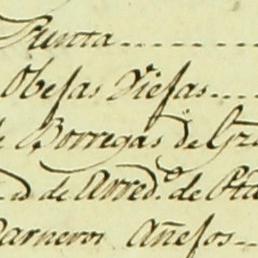 Obejas Viejas
Borregas de
de Arred.o de
Carneros Añejos